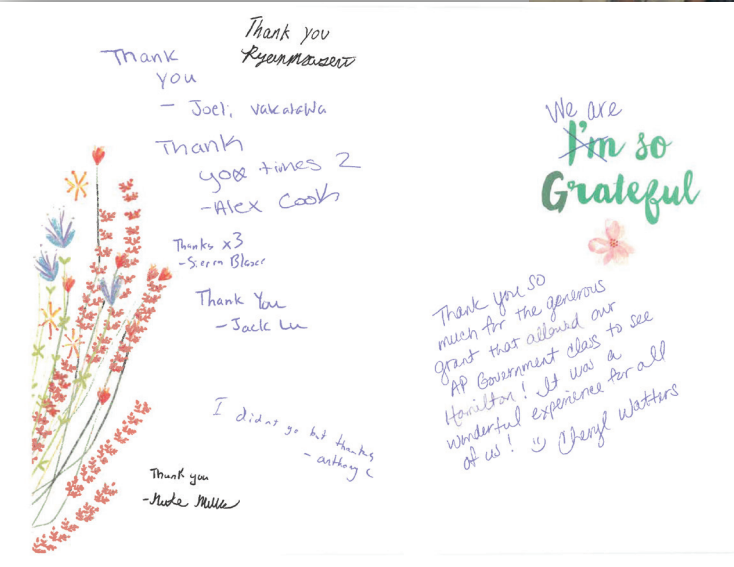 Thank you
Thank
you
- Joeli Vakatawa
Thank
you times 2
-Alex Cook
Thanks x3
-Sierra
Thank You
- Jack Lu
I didnt go but thanks
- anthony c
Thank you
We are
I'm so
Grateful
Thank you so
much for the generous
grant that allowed our
AP Government class to see
Hamilton! It was a
wonderful experience for all
of us! Cheryl Watters